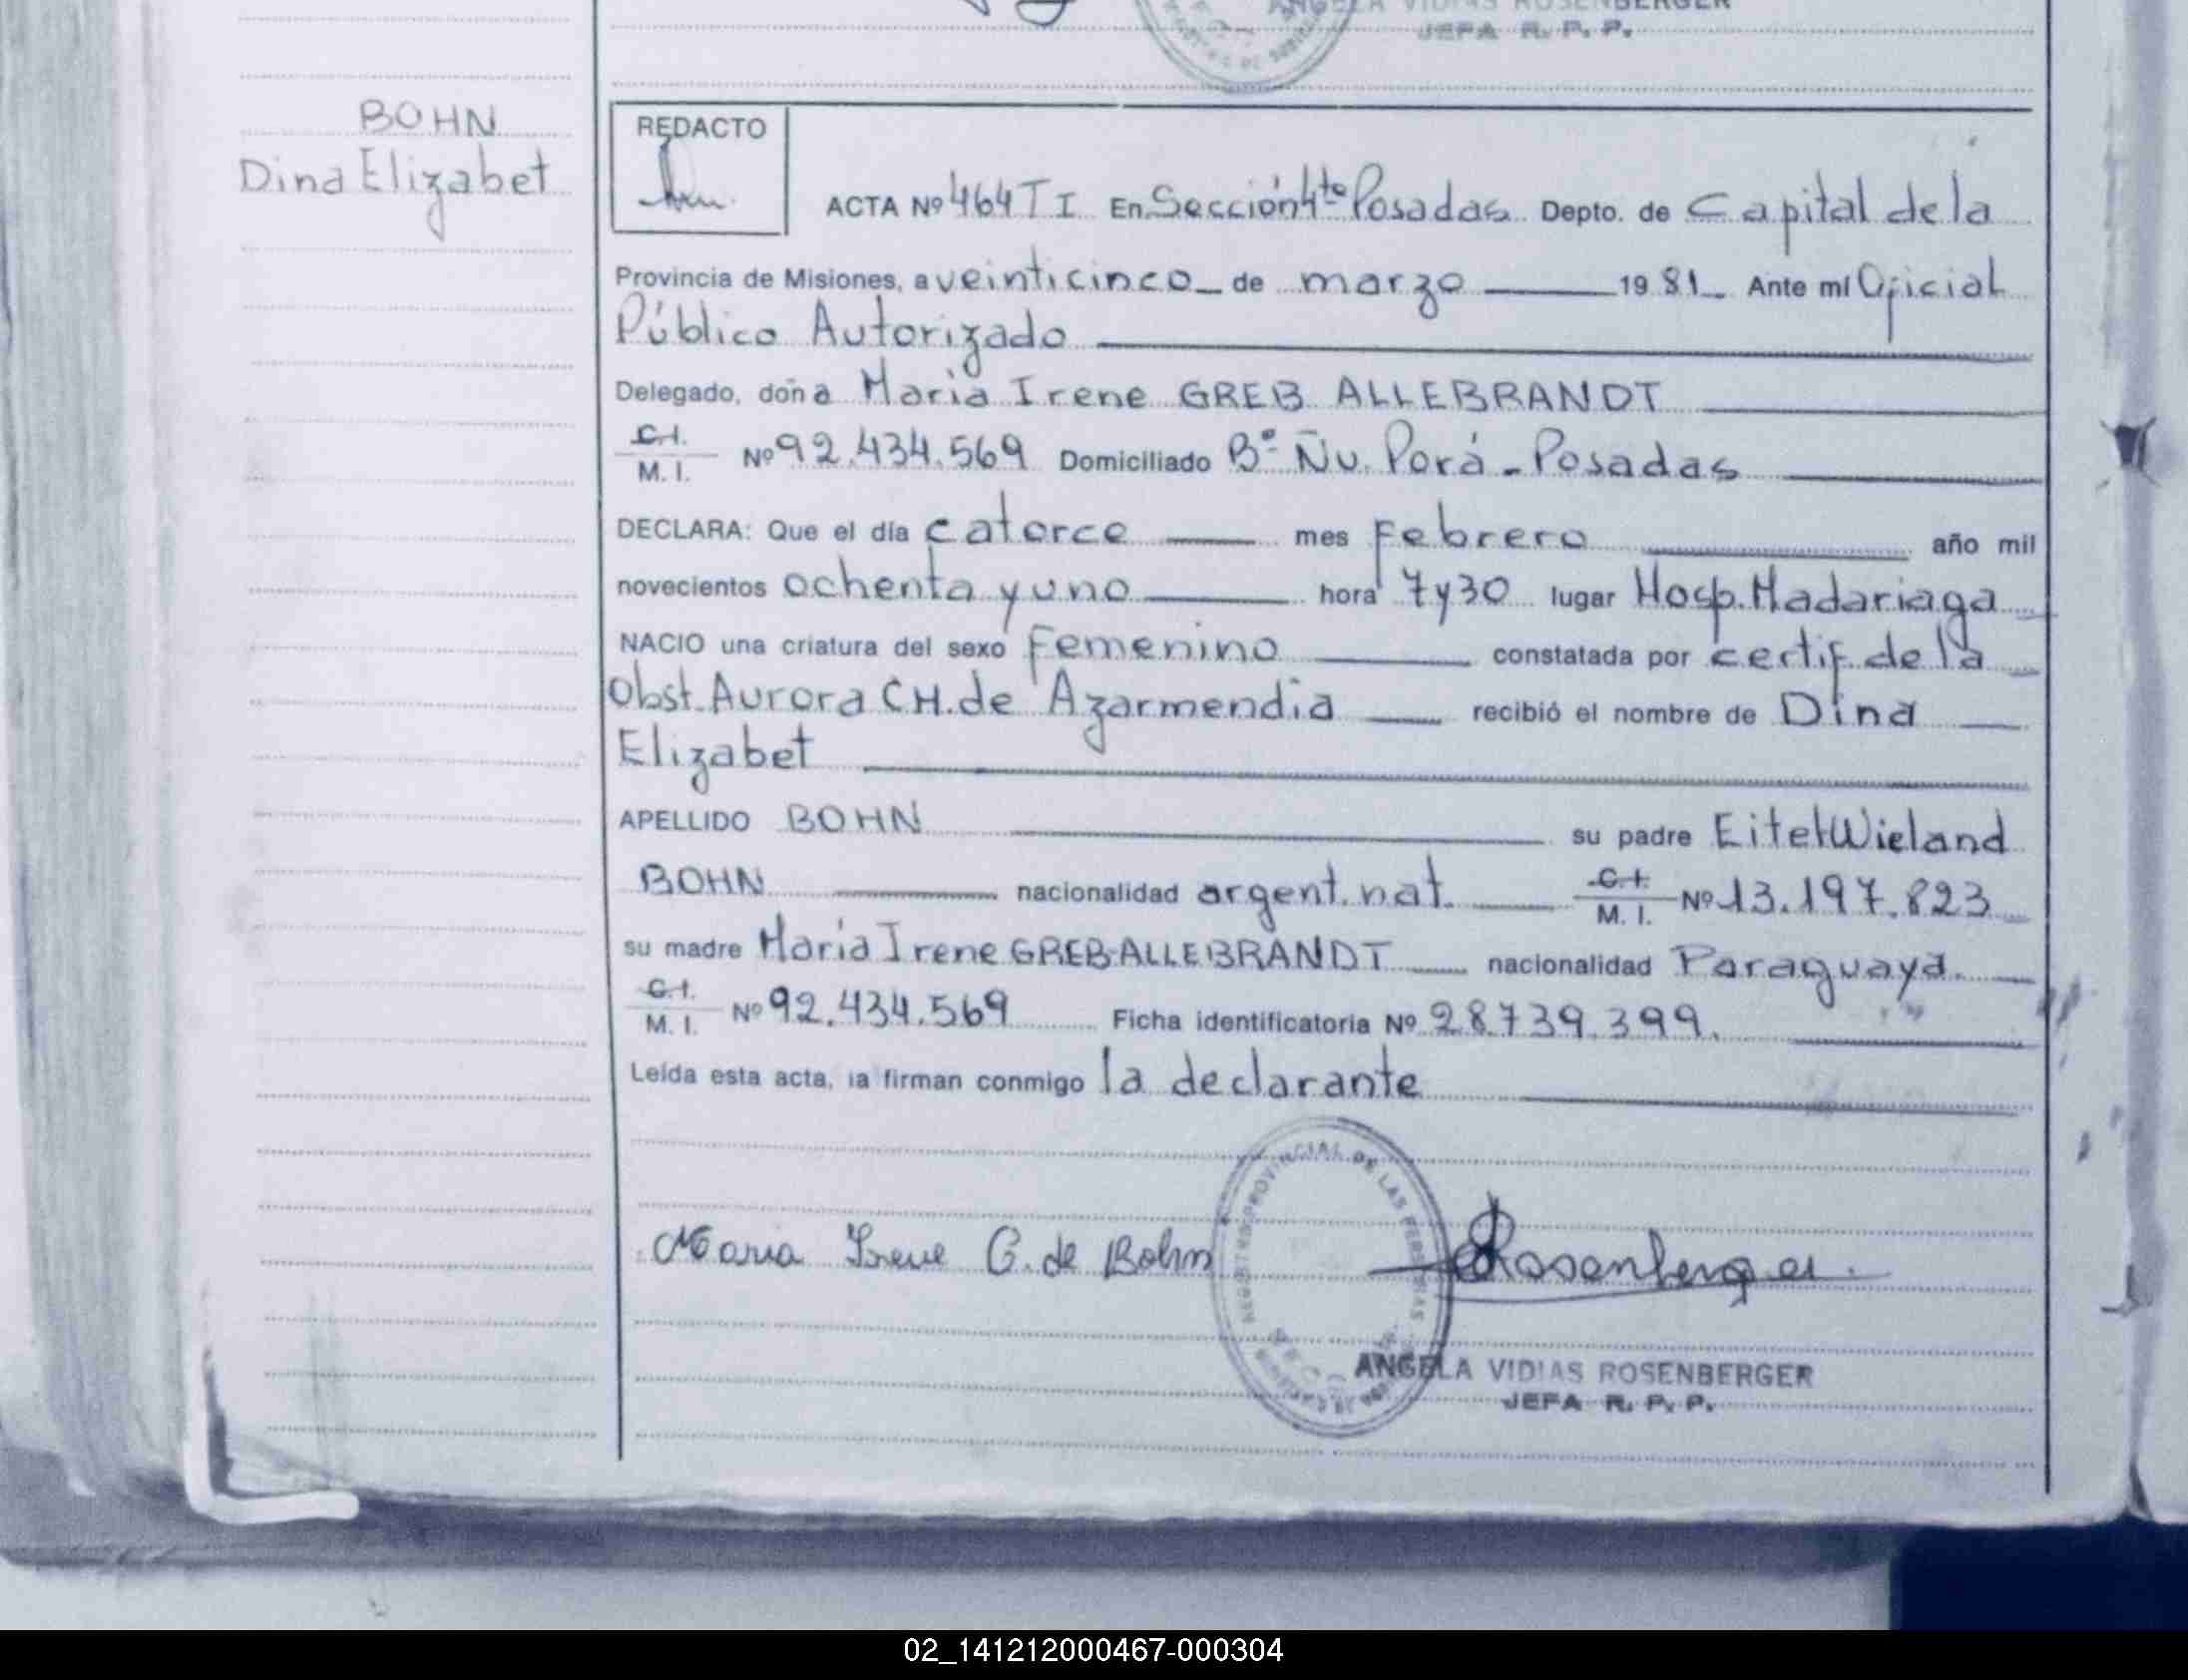 ANGELA VIDIAS ROSENBERGER
JEFA R. P. P.
BOHN
Dina Elizabet
REDACTO
ACTA Nº 464 T I En Sección 4ta Posadas Depto. de Capital de la
Provincia de Misiones, a veinticinco de marzo 1981 Ante mí Oficial
Público Autorizado
Delegado, doña Maria Irene GREB ALLEBRANDT
C.I.
M. I. Nº 92.434.569 Domiciliado Bº Ñu Porá - Posadas
DECLARA: Que el día catorce mes Febrero año mil
novecientos ochenta y uno hora 7y30 lugar Hosp. Madariaga
NACIO una criatura del sexo Femenino constatada por certif. de la
Obst. Aurora CH. de Azarmendia recibió el nombre de Dina
Elizabet
APELLIDO BOHN su padre Eitel Wieland
BOHN nacionalidad argent. nat. C.I.
M. I. Nº 13.197.823
su madre Maria Irene GREB-ALLEBRANDT nacionalidad Paraguaya.
C.I.
M. I. Nº 92.434.569 Ficha identificatoria Nº 28.739.399.
Leída esta acta, la firman conmigo la declarante
REGISTRO PROVINCIAL DE LAS PERSONAS
Maria Irene G. de Bohn
Rosenberger
ANGELA VIDIAS ROSENBERGER
JEFA R. P. P.
02_141212000467-000304